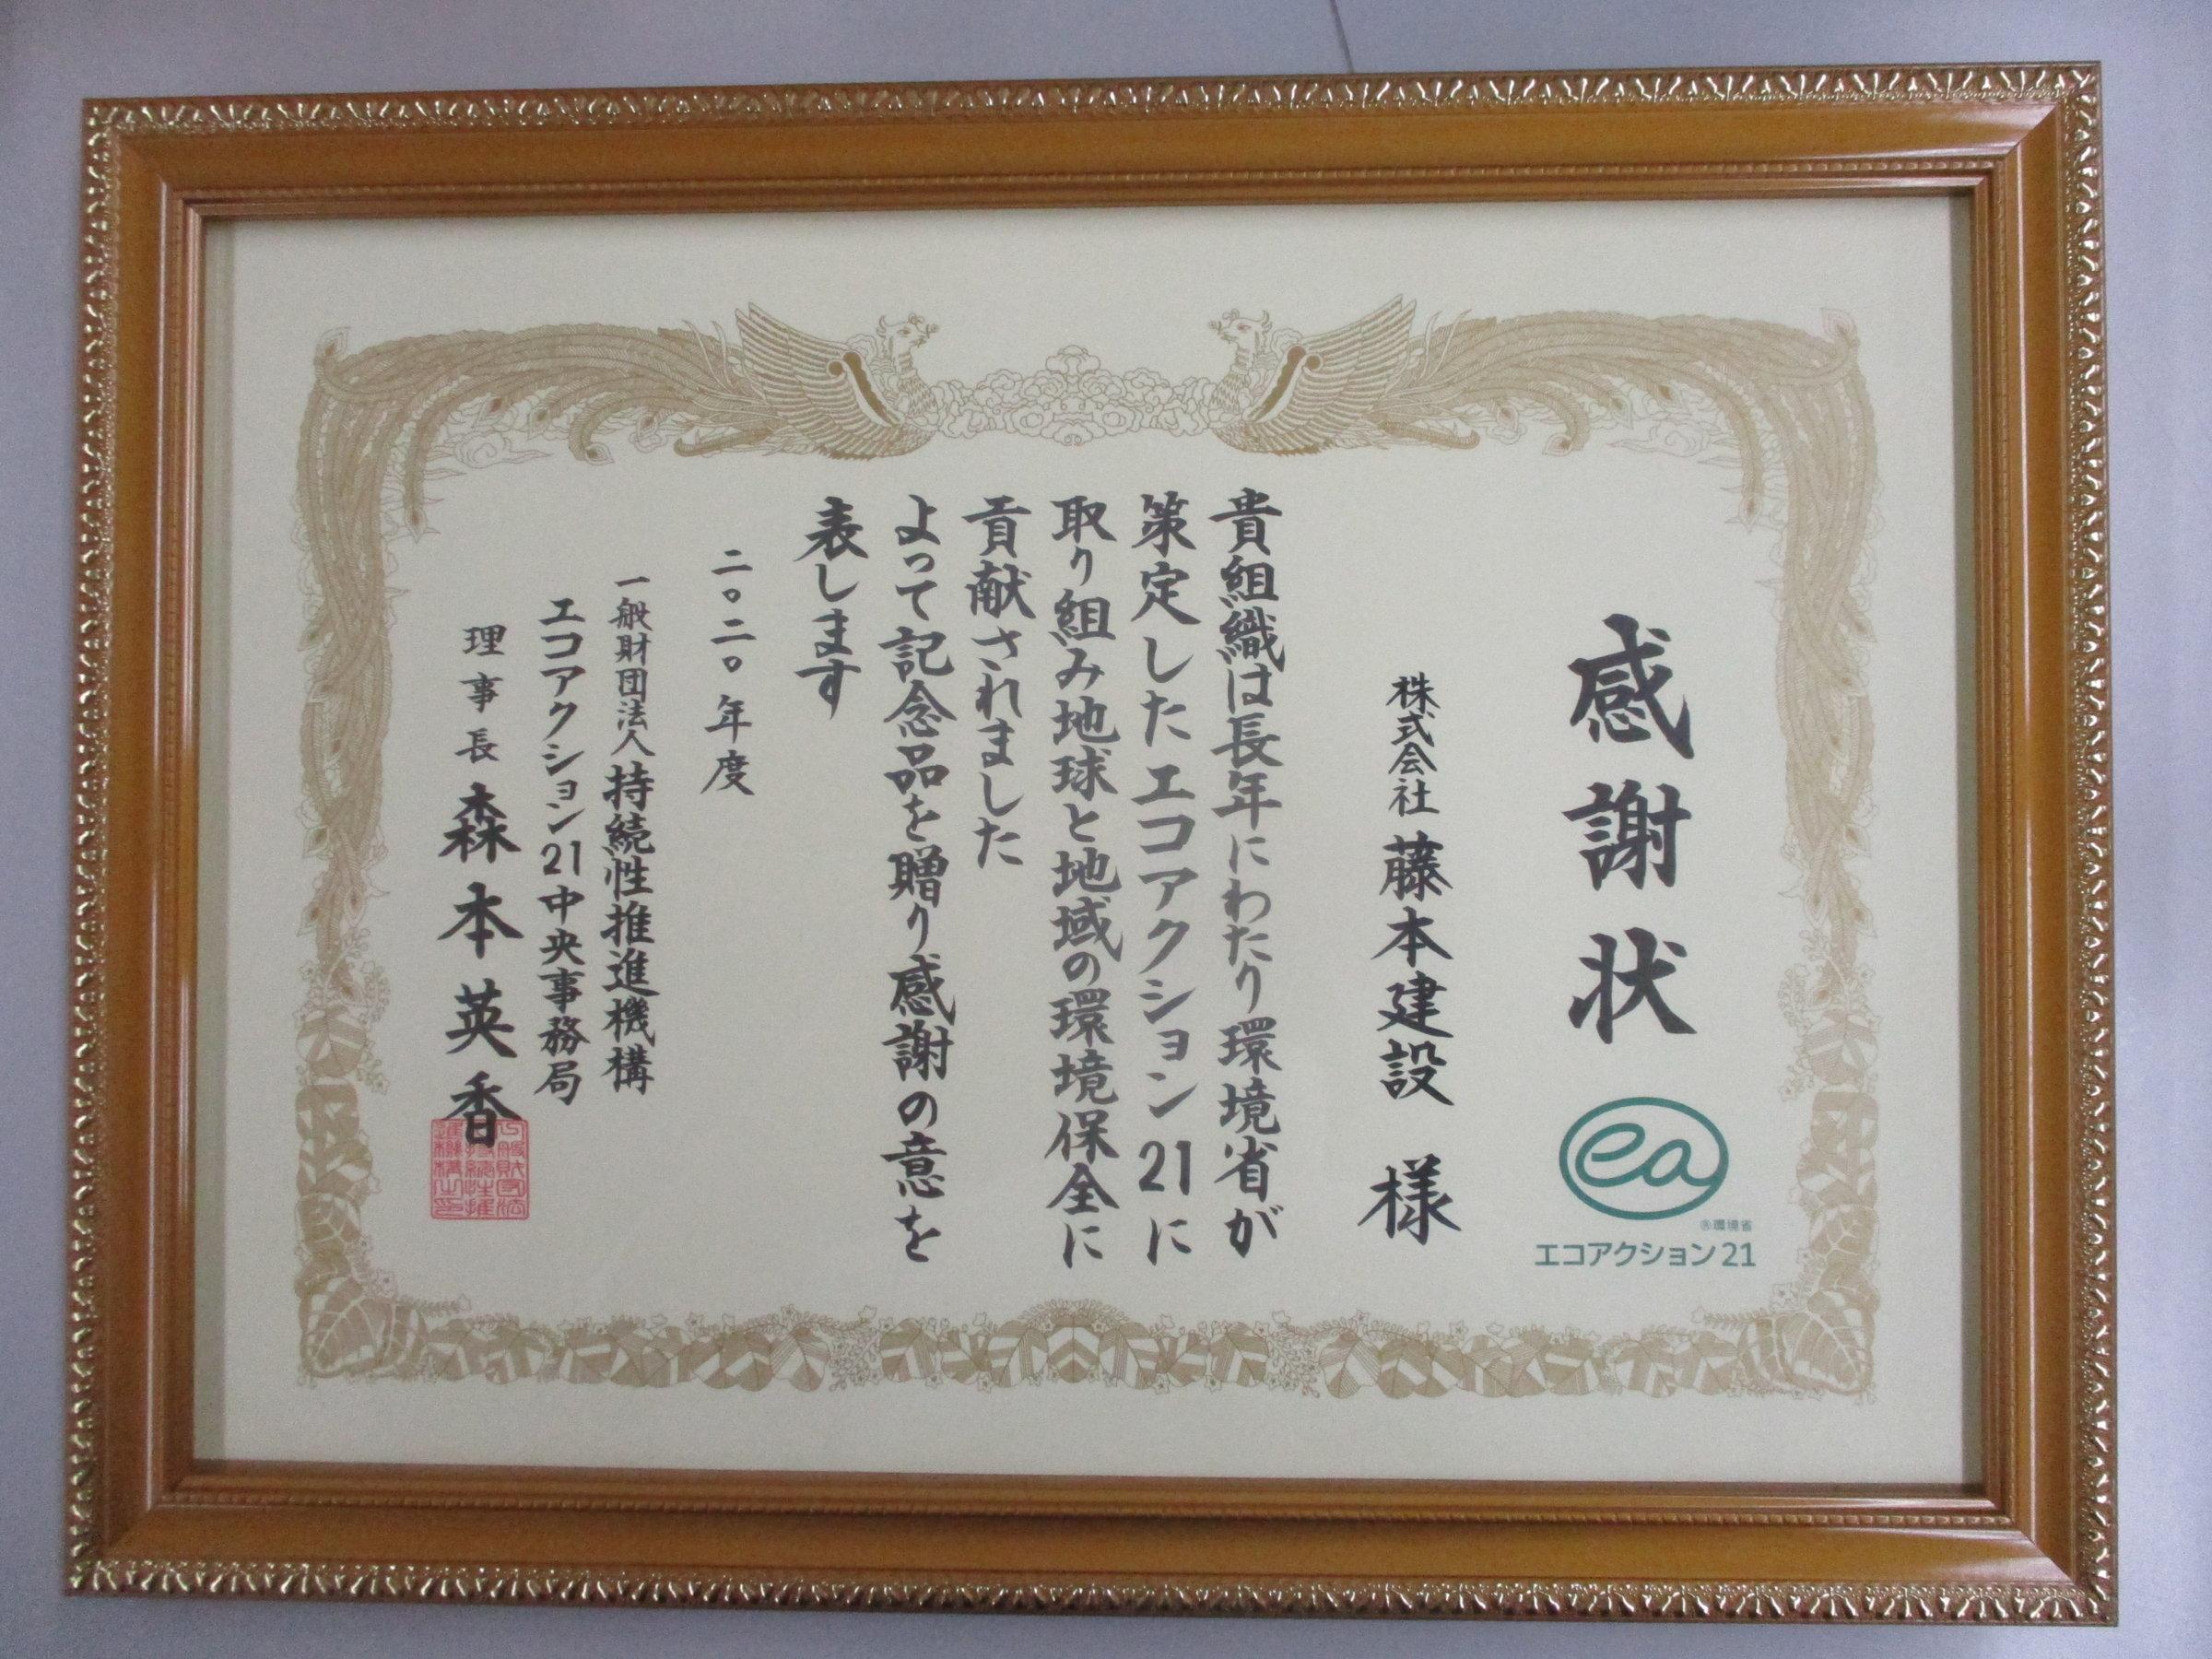 感謝状
ea
Ⓡ環境省
エコアクション21
株式会社 藤本建設 様
貴組織は長年にわたり環境省が
策定したエコアクション21に
取り組み地球と地域の環境保全に
貢献されました
よって記念品を贈り感謝の意を
表します
二〇二〇年度
一般財団法人 持続性推進機構
エコアクション21中央事務局
理事長 森本英香